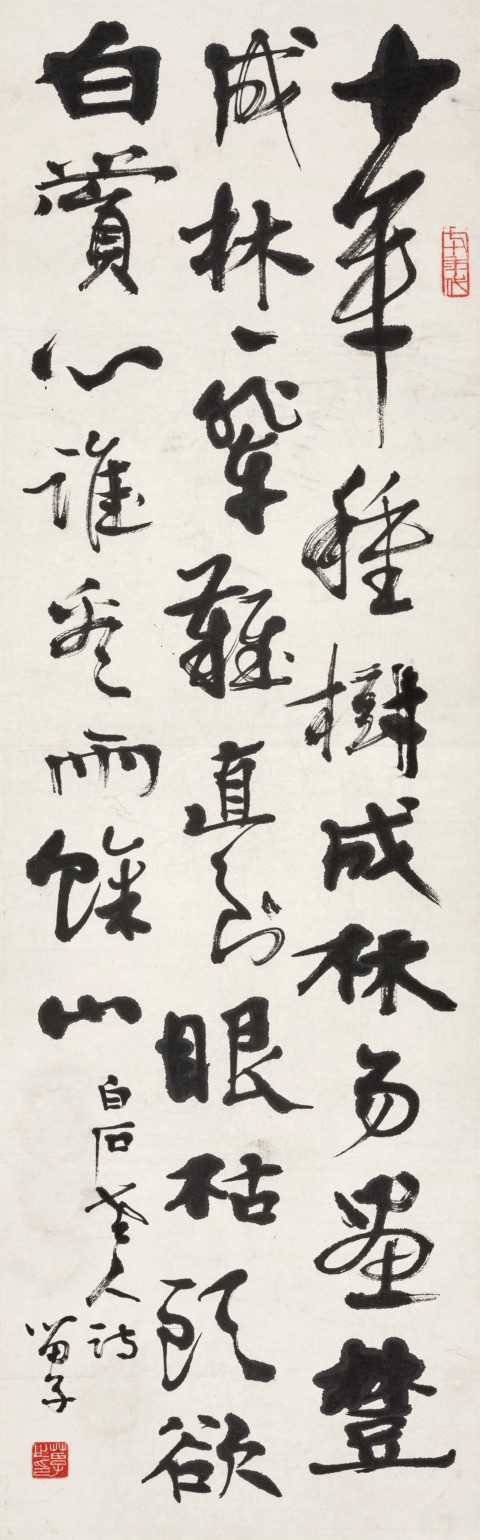 十年種樹成林易畫樹
成林一輩難直到眼枯頭欲
白賞心誰看雨餘山
白石老人詩
苗子